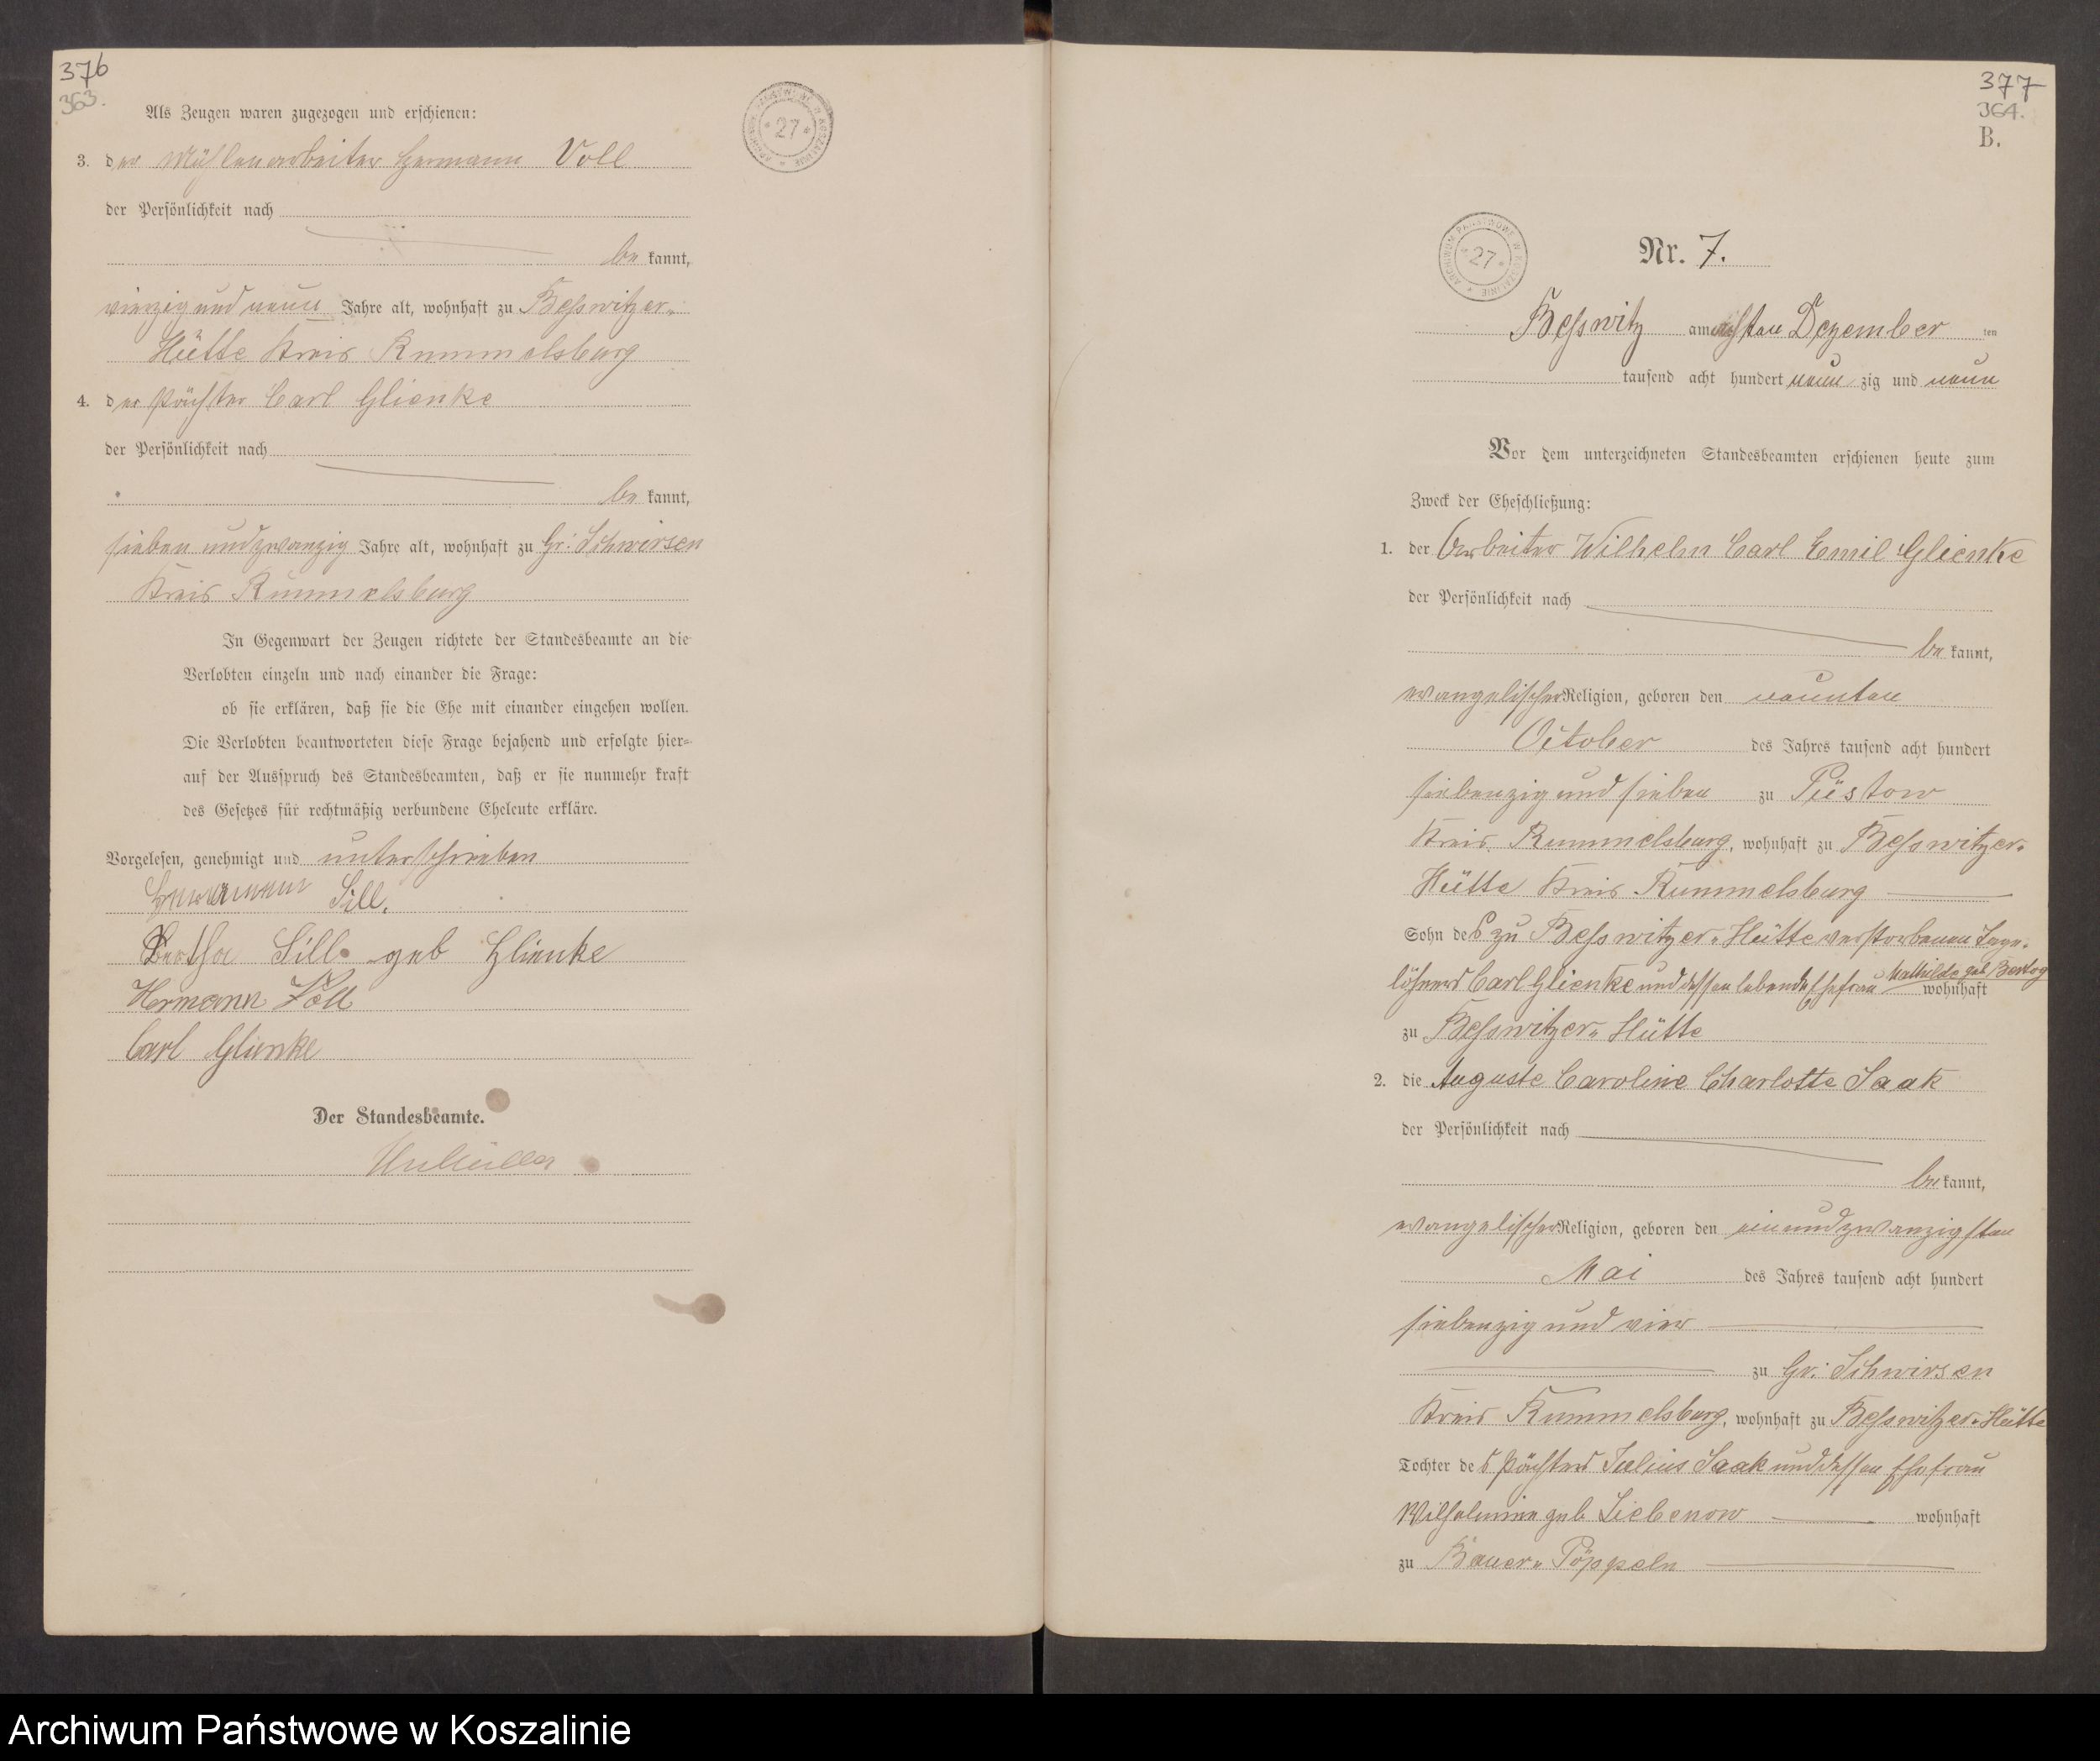 376
363.
Als Zeugen waren zugezogen und erschienen:
3. der Mühlenarbeiter Hermann Voll
der Persönlichkeit nach
be kannt,
vierzig und neun Jahre alt, wohnhaft zu Beßwitzer-
Hütte Kreis Rummelsburg
4. der Pächter Carl Glienke
der Persönlichkeit nach
be kannt,
sieben und zwanzig Jahre alt, wohnhaft zu Gr: Schwirsen
Kreis Rummelsburg
In Gegenwart der Zeugen richtete der Standesbeamte an die
Verlobten einzeln und nach einander die Frage:
ob sie erklären, daß sie die Ehe mit einander eingehen wollen.
Die Verlobten beantworteten diese Frage bejahend und erfolgte hier-
auf der Ausspruch des Standesbeamten, daß er sie nunmehr kraft
des Gesetzes für rechtmäßig verbundene Eheleute erkläre.
Vorgelesen, genehmigt und unterschrieben
Sill.
Bertha Sill geb Glienke
Hermann Voll
Carl Glienke
Der Standesbeamte.
ARCHIWUM PAŃSTWOWE W KOSZALINIE
* 27 *
377
364.
B.
ARCHIWUM PAŃSTWOWE W KOSZALINIE
* 27 *
Nr. 7.
Beßwitz am Dezember ten
tausend acht hundert neun zig und neun
Vor dem unterzeichneten Standesbeamten erschienen heute zum
Zweck der Eheschließung:
1. der Arbeiter Wilhelm Carl Emil Glienke
der Persönlichkeit nach
be kannt,
evangelischer Religion, geboren den neunten
October des Jahres tausend acht hundert
siebenzig und sieben zu Püstow
Kreis Rummelsburg, wohnhaft zu Beßwitzer-
Hütte Kreis Rummelsburg
Sohn des zu Beßwitzer-Hütte verstorbenen Tage-
löhners Carl Glienke und dessen lebende Ehefrau Mathilde geb. wohnhaft
zu Beßwitzer-Hütte
2. die Auguste Caroline Charlotte Saak
der Persönlichkeit nach
be kannt,
evangelischer Religion, geboren den einundzwanzigsten
Mai des Jahres tausend acht hundert
siebenzig und vier
zu Gr: Schwirsen
Kreis Rummelsburg, wohnhaft zu Beßwitzer-Hütte
Tochter des Pächters Julius Saak und dessen Ehefrau
Wilhelmine geb Liebenow wohnhaft
zu Bauer-Pöppeln
Archiwum Państwowe w Koszalinie